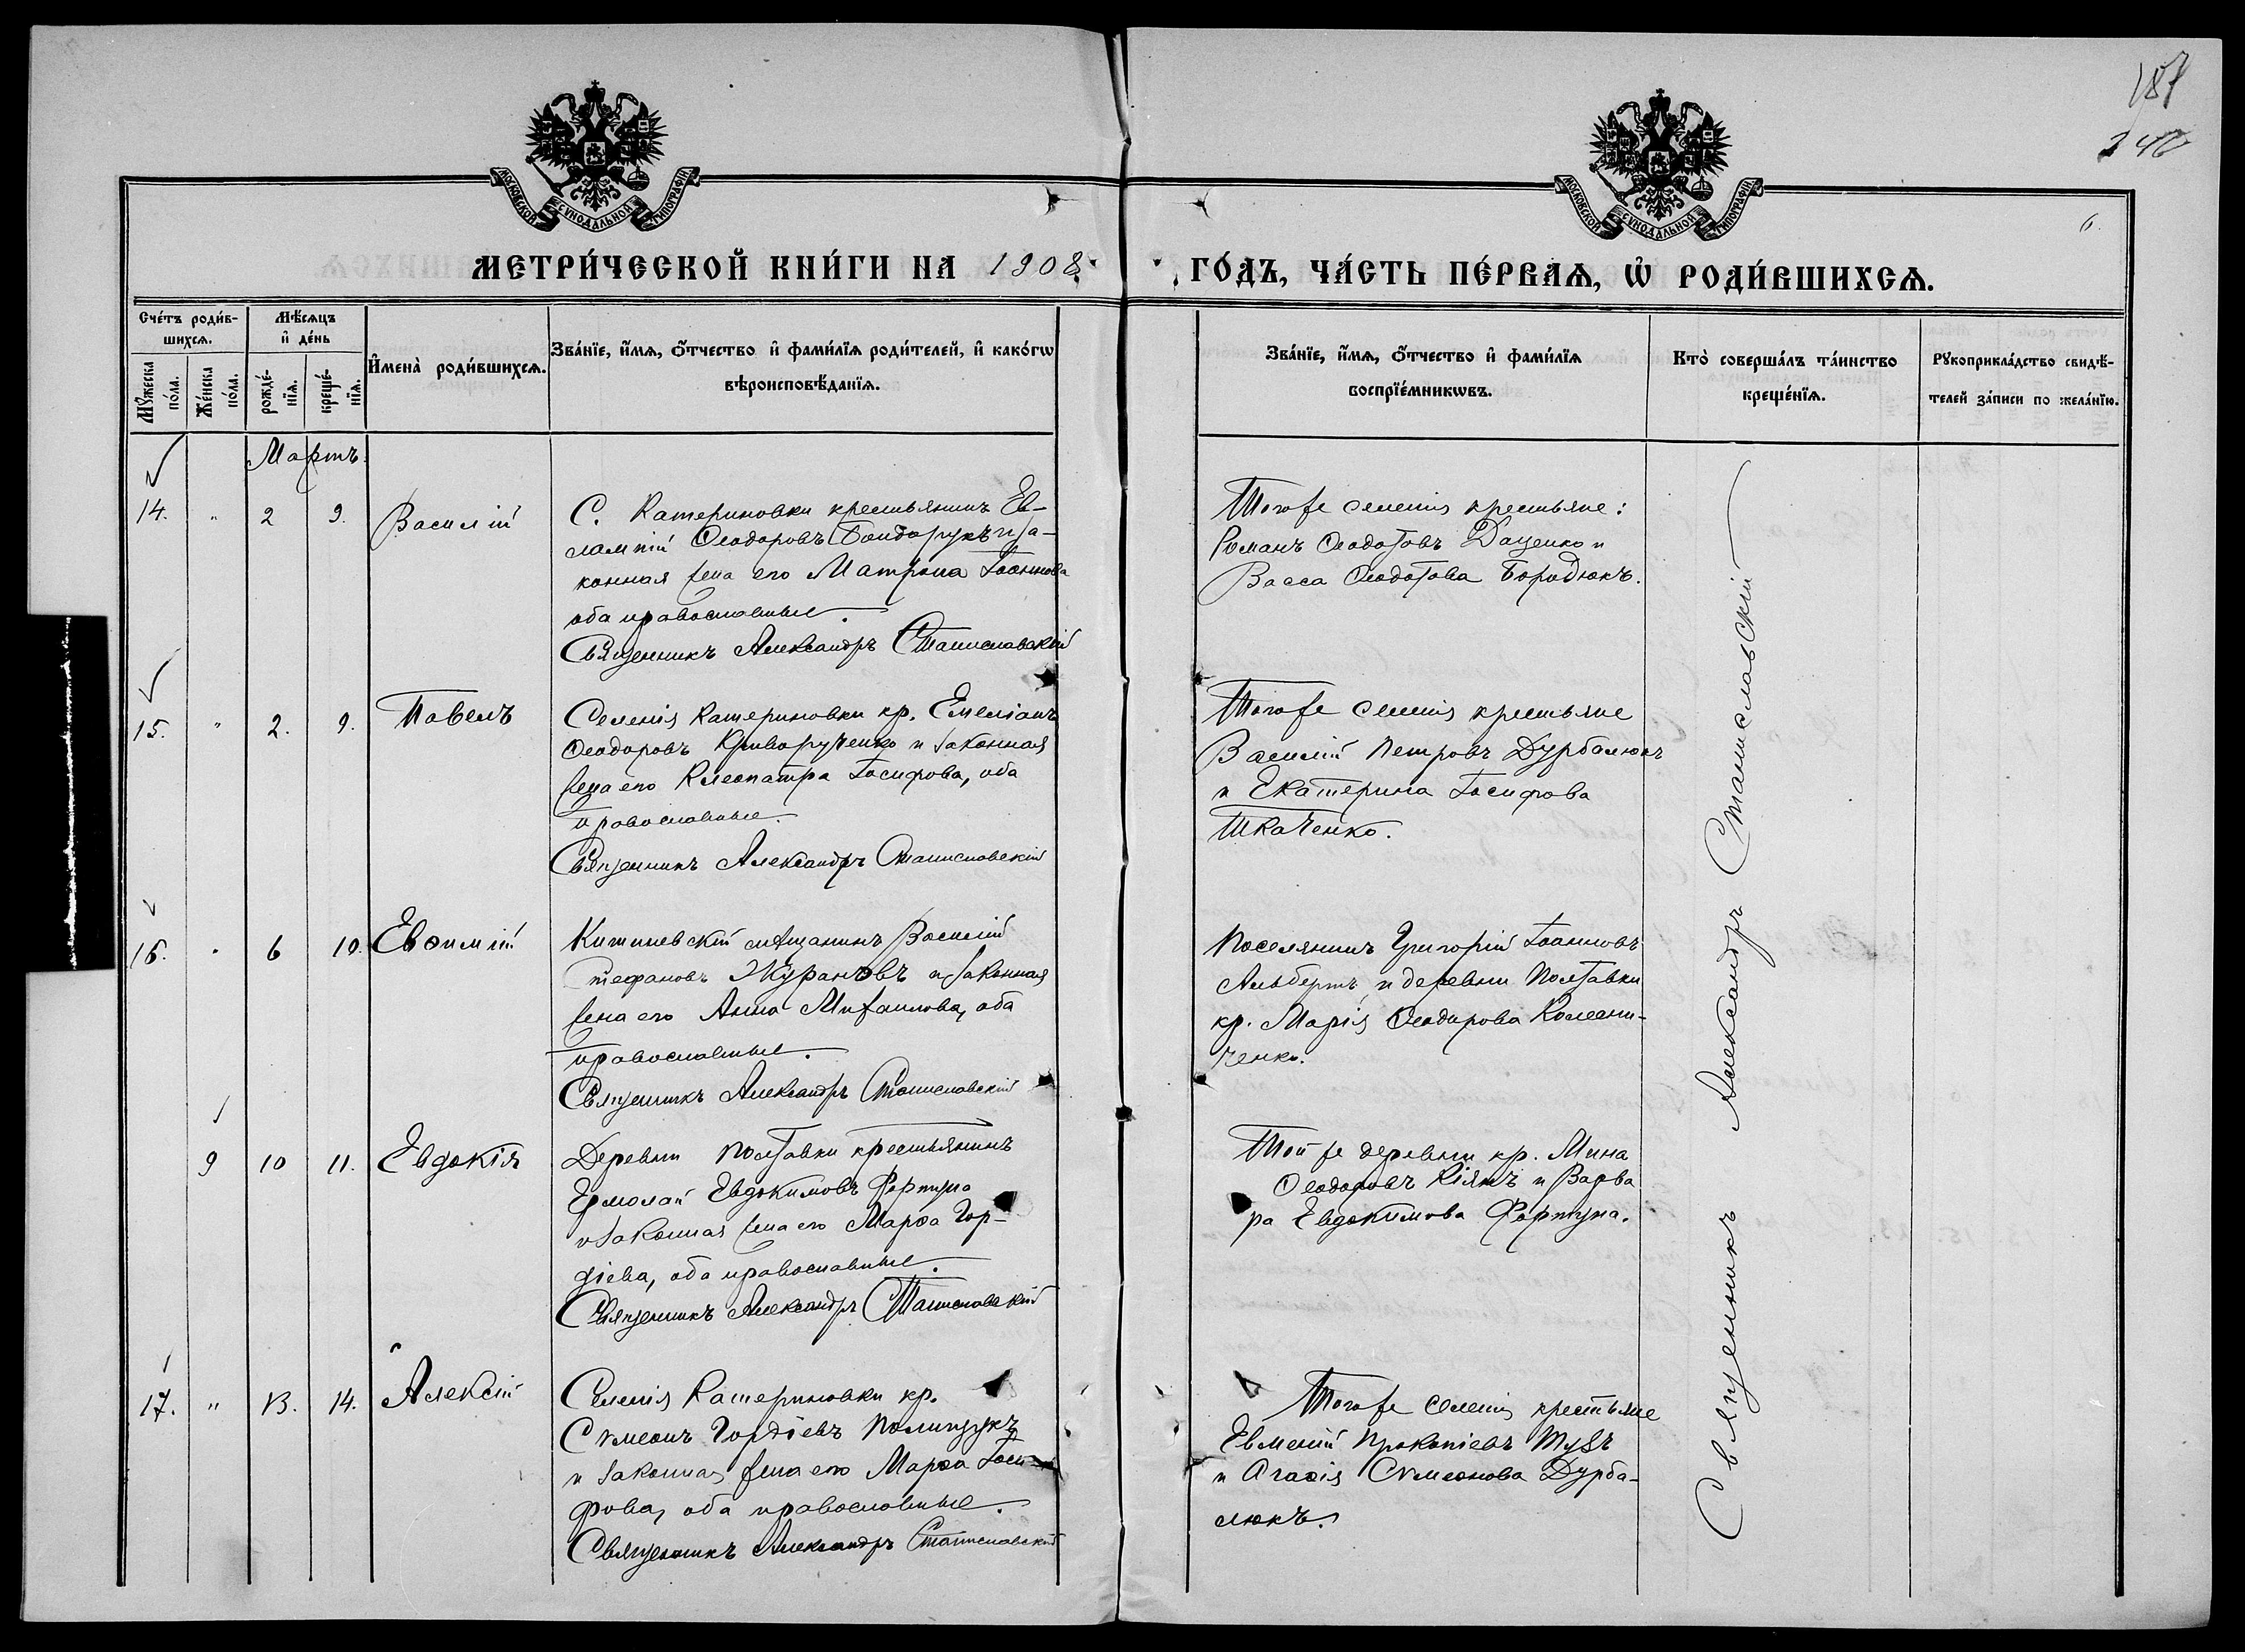 187
246
6.
МОСКОВСКОЙ СѴНОДАЛЬНОЙ ТИПОГРАФІИ
МОСКОВСКОЙ СѴНОДАЛЬНОЙ ТИПОГРАФІИ
МЕТРИ́ЧЕСКОЙ КНИ́ГИ НА 1908
ГО́ДЪ, ЧА́СТЬ ПЕ́РВАѦ, Ѡ҆ РОДИ́ВШИХСѦ.
Сче́тъ роди́вшихсѧ.
Мѣ́сѧцъ и҆ де́нь
Мꙋ́жеска по́ла.
Же́нска по́ла.
рожде́нїѧ.
креще́нїѧ.
И҆мена̀ роди́вшихсѧ.
Зва́нїе, и҆́мѧ, ѻ҆́тчество и҆ фами́лїѧ роди́телей, и҆ како́гѡ
вѣроисповѣ́данїѧ.
Зва́нїе, и҆́мѧ, ѻ҆́тчество и҆ фами́лїѧ
воспрїе́мникѡвъ.
Кто̀ соверша́лъ та́инство
креще́нїѧ.
Рꙋкоприкла́дство свидѣ́-
телей за́писи по жела́нїю.
Мартъ.
14. " 2 9. Василій
С. Катериновки крестьянинъ Ев-
лампій Ѳеодоровъ Бондарукъ и за-
конная жена его Матрона Іоаннова
оба православные.
Священникъ Александръ Станиславскій
Тогоже селенія крестьяне:
Романъ Ѳеодотовъ Даценко и
Васса Ѳеодотова Бородюкъ.
15. " 2. 9. Павелъ
Селенія Катериновки кр. Емеліанъ
Ѳеодоровъ Криворученко и законная
жена его Клеопатра Іосифова, оба
православные.
Священникъ Александръ Станиславскій
Тогоже селенія крестьяне
Василій Петровъ Дурбалюкъ
и Екатерина Іосифова
Ткаченко.
16. " 6 10. Евѳимій
Кишиневскій мѣщанинъ Василій
Стефановъ Журановъ и законная
жена его Анна Михаилова, оба
православные.
Священникъ Александръ Станиславскій
Поселянинъ Григорій Іоанновъ
Альбертъ и деревни Полтавки
кр. Марія Ѳеодорова Колесни-
ченко.
9 10 11. Евдокія
Деревни Полтавки крестьянинъ
Ермолай Евдокимовъ Фортуна
и законная жена его Марѳа Гор-
діева, оба православные.
Священникъ Александръ Станиславскій
Той же деревни кр. Мина
Ѳеодоровъ Кіянъ и Варва
ра Евдокимова Фортуна.
17. " 13. 14. Алексій
Селенія Катериновки кр.
Сѵмеонъ Гордіевъ Полищукъ
и законная жена его Марѳа Іоси-
фова, оба православные.
Священникъ Александръ Станиславскій
Тогоже селенія крестьяне
Евмений Прокопіевъ Тузъ
и Агаѳія Сѵмеонова Дурба-
люкъ.
Священникъ Александръ Станиславскій